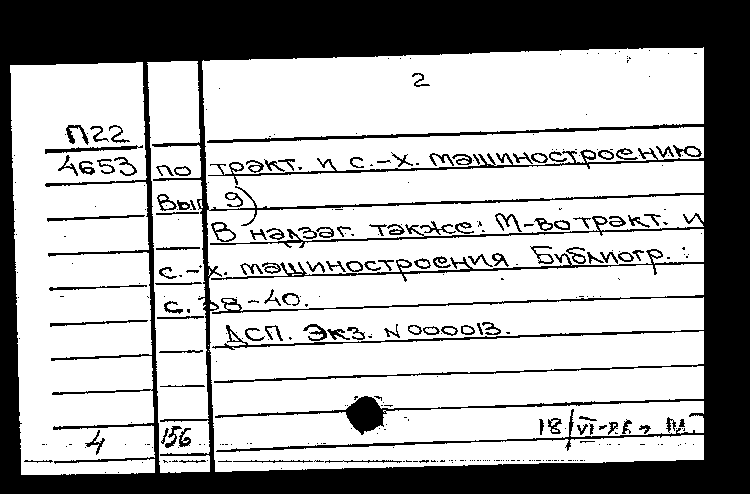 2
П22
4653 по тракт. и с.-х. машиностроению
Вып. 9).
В надзаг. также: М-во тракт. и
с.-х. машиностроения. Библиогр.:
с. 38-40.
ДСП. Экз. N 000013.
4 156 18/VI-